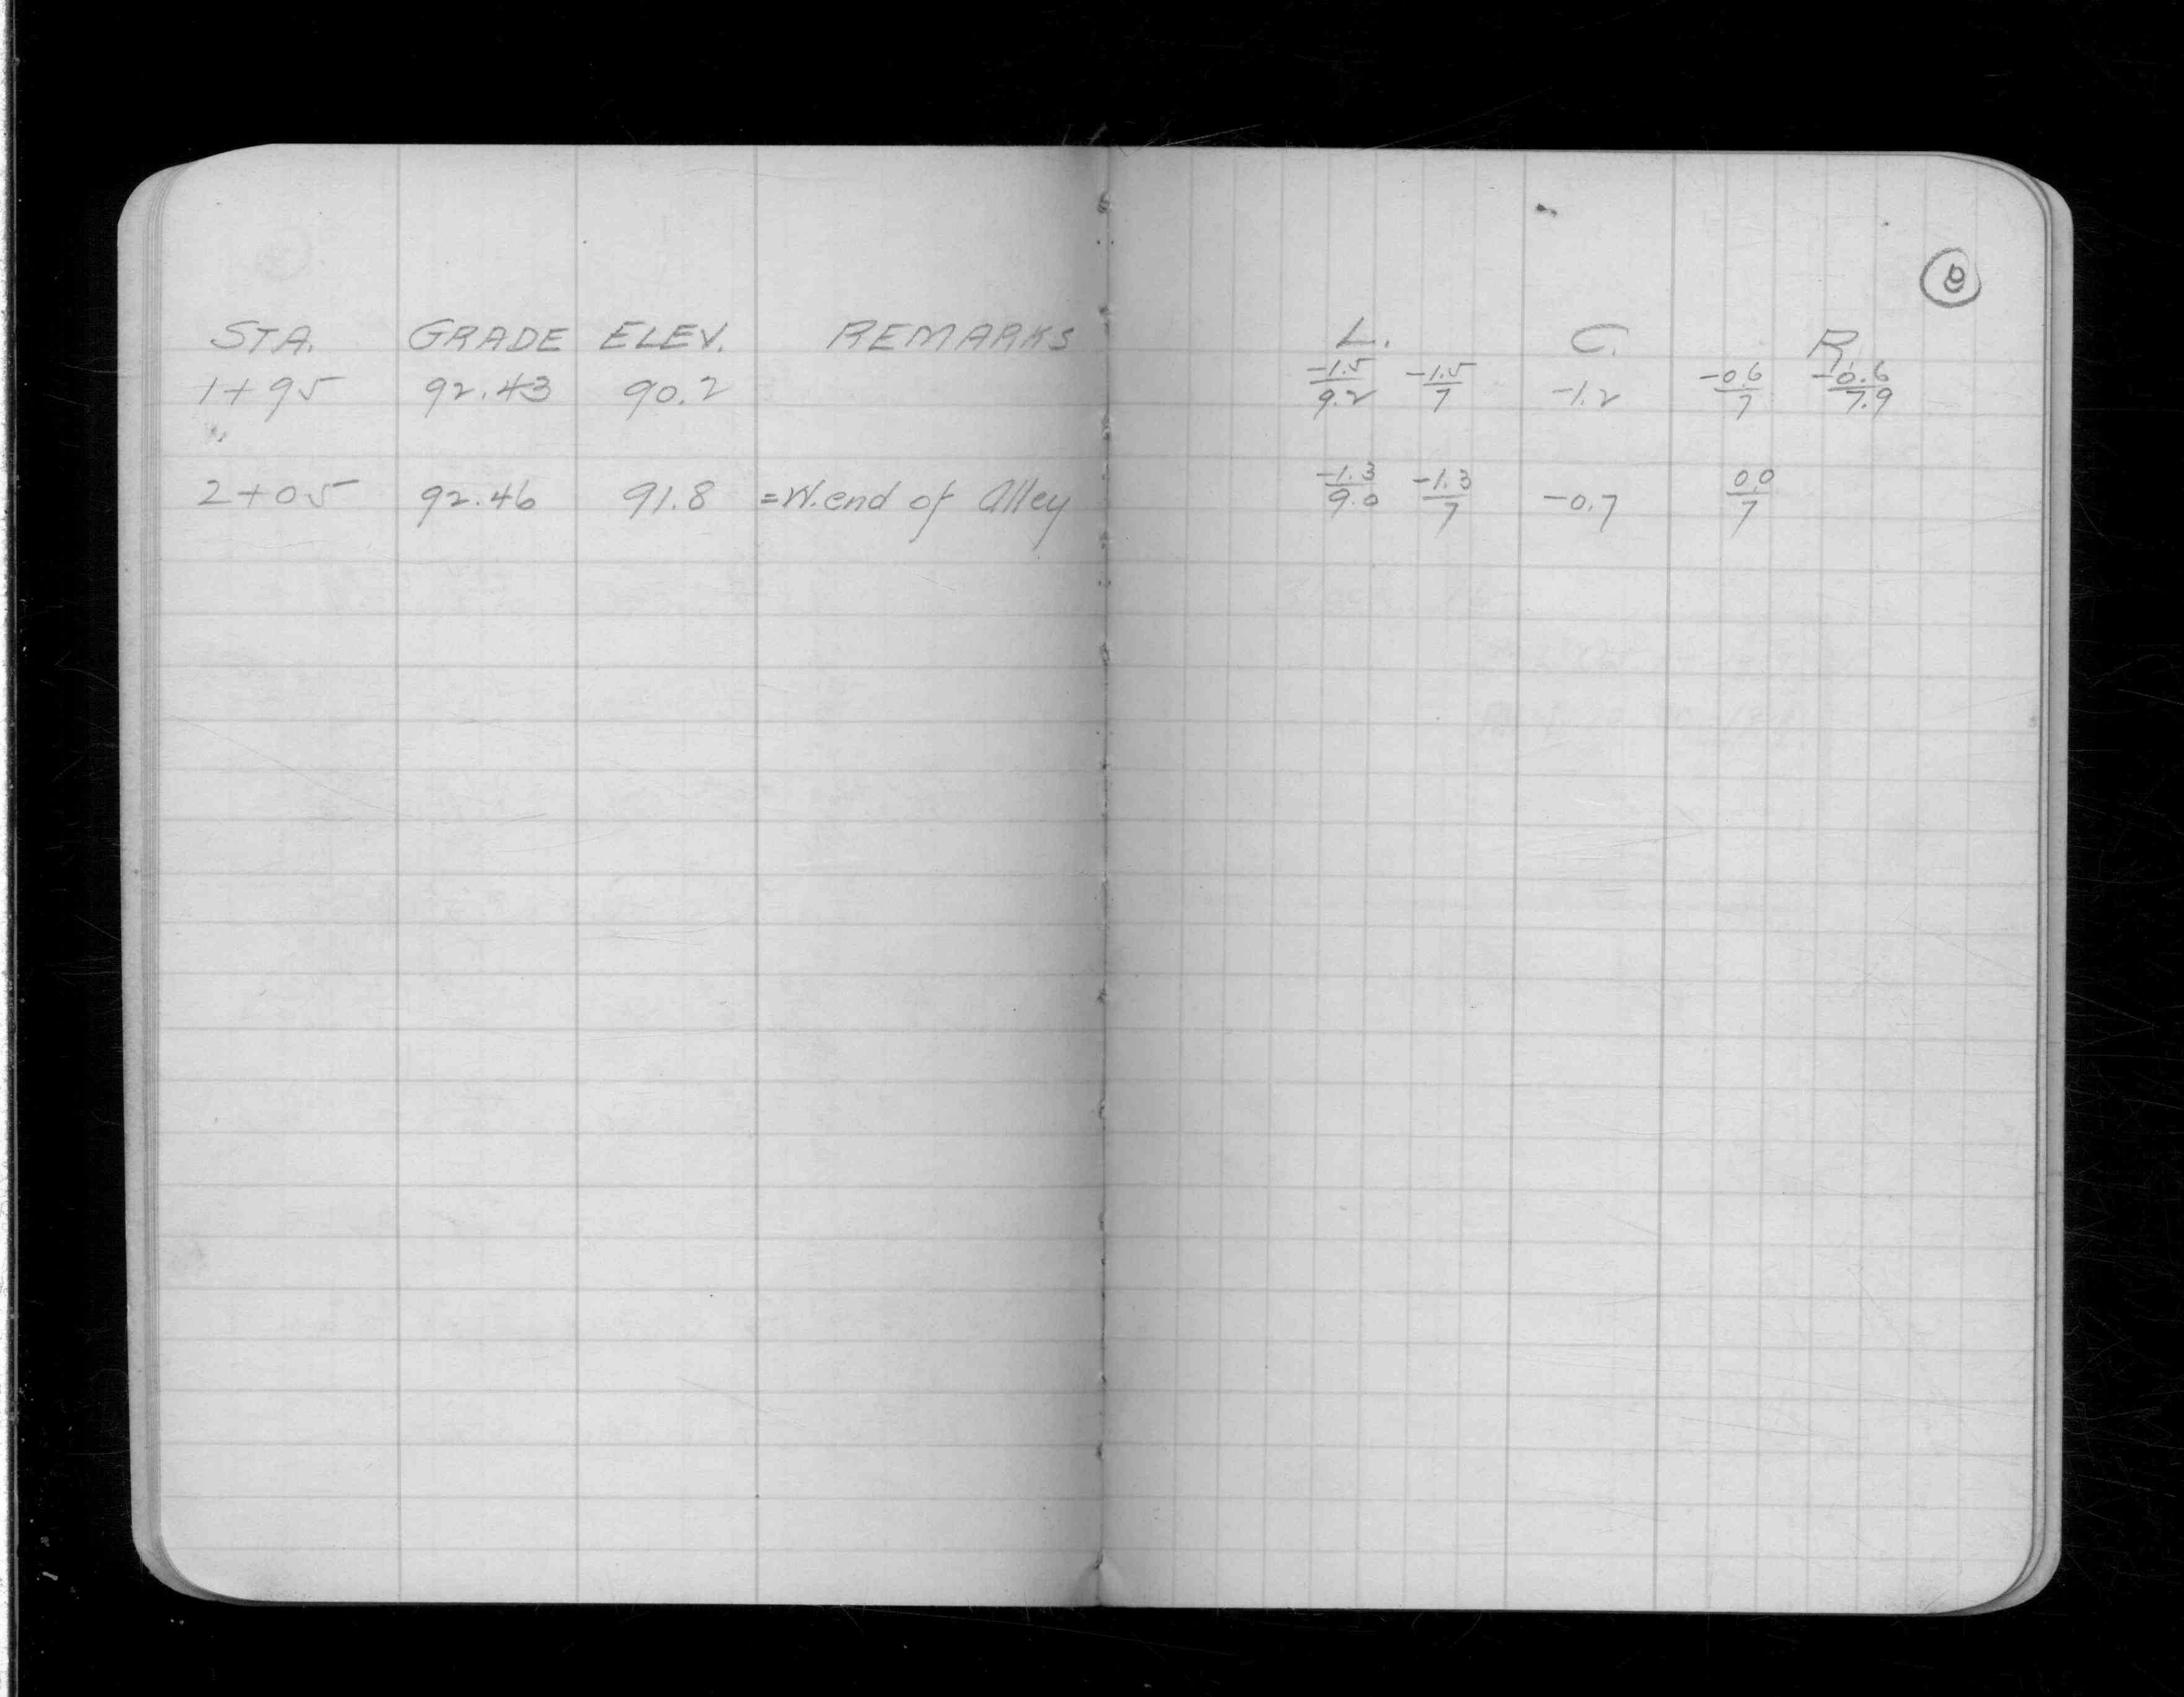 8
STA. GRADE ELEV. REMARKS L. C. R.
1+95 92.43 90.2 -1.5/9.2 -1.5/7 -1.2 -0.6/7 -0.6/7.9
2+05 92.46 91.8 =W. end of Alley -1.3/9.0 -1.3/7 -0.7 0.0/7